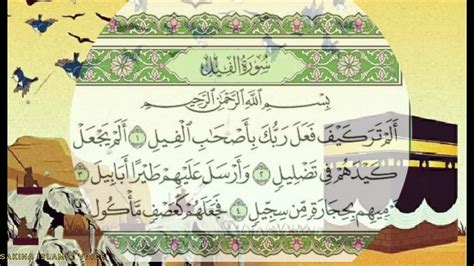 سُورَةُ الفِيلِ
بِسْمِ اللَّهِ الرَّحْمَٰنِ الرَّحِيمِ
أَلَمْ تَرَ كَيْفَ فَعَلَ رَبُّكَ بِأَصْحَٰبِ الْفِيلِ ١ أَلَمْ يَجْعَلْ
كَيْدَهُمْ فِي تَضْلِيلٍ ٢ وَأَرْسَلَ عَلَيْهِمْ طَيْرًا أَبَابِيلَ ٣
تَرْمِيهِم بِحِجَارَةٍ مِّن سِجِّيلٍ ٤ فَجَعَلَهُمْ كَعَصْفٍ مَّأْكُولٍ
SAKINA ISLAMIC